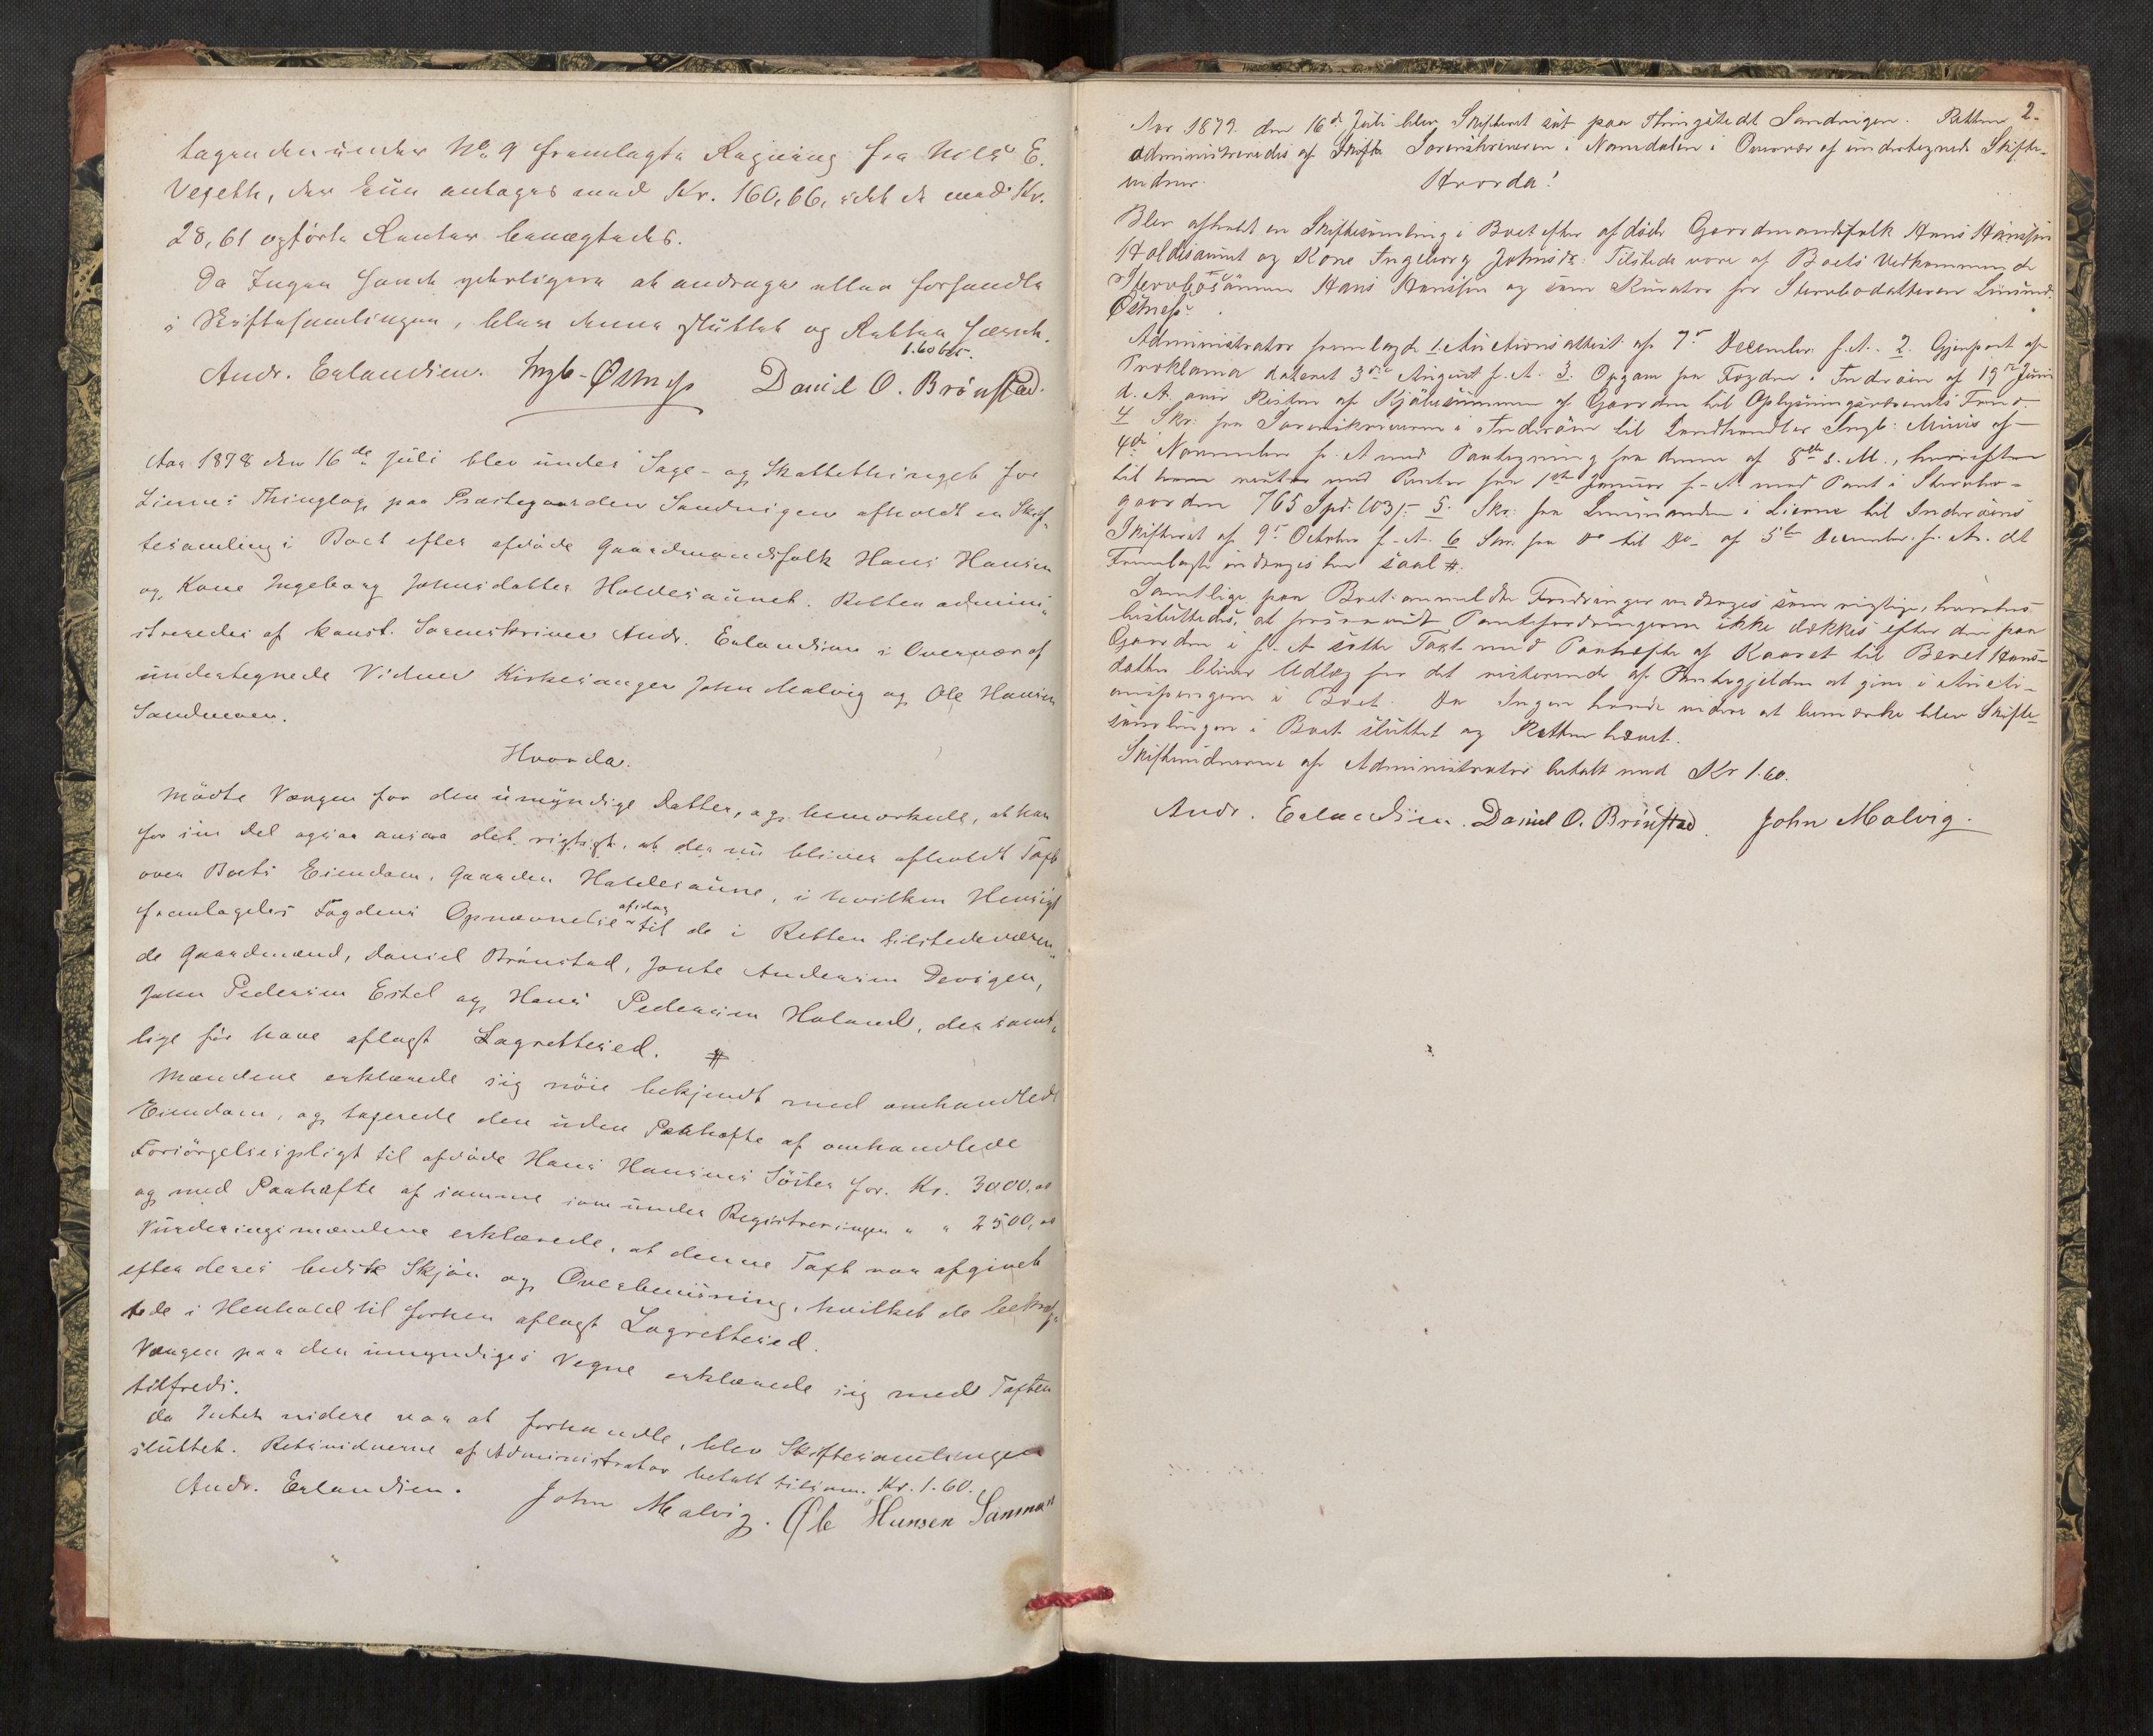 tagen den under No. 9 fremlagte Regning fra Nils E.
Vegeth, der kun antages med Kr. 160,66, idet de med Kr.
28,61 opførte Renter benægtedes.
Da Ingen havde yderligere at andrage eller forhandle
i Skiftesamlingen, blev denne sluttet og Retten hævet.
1.60 bet.
Andr. Erlandsen. Ingb. Østness Daniel O. Brönstad.
Aar 1878 den 16de Juli blev under Sage- og Skattethinget for
Liernes Thinglag paa Præstegaarden Sandvigen afholdt en Skif-
tesamling i Boet efter afdøde Gaardmandsfolk Hans Hansen
og Kone Ingeborg Johnsdatter Holdesaunet. Retten admini-
streredes af const. Sorenskriver Andr. Erlandsen i Overvær af
undertegnede Vidner Kirkesanger John Malvig og Ole Hansen
Sandmoen.
Hvorda.
Mødte Værgen for den umyndige Datter, og bemærkede, at han
for sin Del ogsaa ansaa det rigtigt, at der nu bliver afholdt Taxt
over Boets Eiendom, Gaarden Holdesaune, i hvilken Hensigt
fremlagdes Fogdens Opnævnelse afidag til de i Retten tilstedeværen-
de Gaardmænd, Daniel Brönstad, Jonte Andersen Devigen,
John Pedersen Estel og Hans Pedersen Holand, der samt-
lige før have aflagt Lagrettesed. #
Mændene erklærede sig nöie bekjendt med omhandlede
Eiendom, og taxerede den uden Paahæfte af omhandlede
Forsörgelsespligt til afdøde Hans Hansens Söster for. Kr. 3000,00
og med Paahæfte af samme som under Registreringen " " 2500,00
Vurderingsmændene erklærede, at denne Taxt var afgivet
efter deres bedste Skjön og Overbevisning, hvilket de bekræf-
tede i Henhold til forhen aflagt Lagrettesed.
Værgen paa den umyndiges Vegne erklærede sig med Taxten
tilfreds.
Da Intet videre var at forhandle, blev Skiftesamlingen
sluttet. Retsvidnerne af Administrator betalt tilsam. Kr. 1.60.
Andr. Erlandsen. John Malvig. Ole Hansen Sanmoen
2.
Aar 1879 den 16de Juli blev Skifteret sat paa Thingstedet Sandvigen. Retten
administreredes af Sorenskriveren i Namdalen i Overvær af undertegnede Skifte-
vidner. Hvorda!
Blev afholdt en Skiftesamling i Boet efter afdöde Gaardmandsfolk Hans Hansen
Holdesaunet og Kone Ingeborg Johnsdr. Tilstede vare af Boets Vedkommende
Stervbosönnen Hans Hansen og som Kurator for Stervbodatteren Lensmd.
Östness.
Administrator fremlagde 1. Auctionsattest af 7de December f. A. 2. Gjenpart af
Proklama dateret 3die August f. A. 3. Opgave fra Fogden i Inderöen af 19de Juni
d. A. over Resten af Kjöbesummen af Gaarden til Oplysningsvæsenets Fond.
4 Skr. fra Sorenskriveren i Inderöen til Landhandler Ingb. Muus af
4de November f. A. med Paategning fra denne af 8de s. M., hvorefter
til ham rester med Renter fra 1ste Januar f. A. med Pant i Stervbo-
gaarden 765 Spd. 103 s. 5. Skr. fra Lensmanden i Lierne til Inderöens
Skifteret af 9de October f. A. 6 Skr. fra Do til Do af 5te December f. A. det
Fremlagte inddrages her saal. #
Samtlige paa Boet anmeldte Fordringer vedtoges som rigtige, hvorhos
besluttedes, at forsaavidt Pantefordringerne ikke dækkes efter den paa
Gaarden i f. A. satte Taxt med Paahæfte af Kaaret til Beret Hans-
datter bliver Udlæg for det resterende af Pantegjelden at give i Aucti-
onspengene i Boet. Da Ingen havde videre at bemærke blev Skifte-
samlingen i Boet sluttet og Retten hævet.
Skiftevidnerne af Administrator betalt med Kr 1.60.
Andr. Erlandsen. Daniel O. Brönstad. John Malvig.